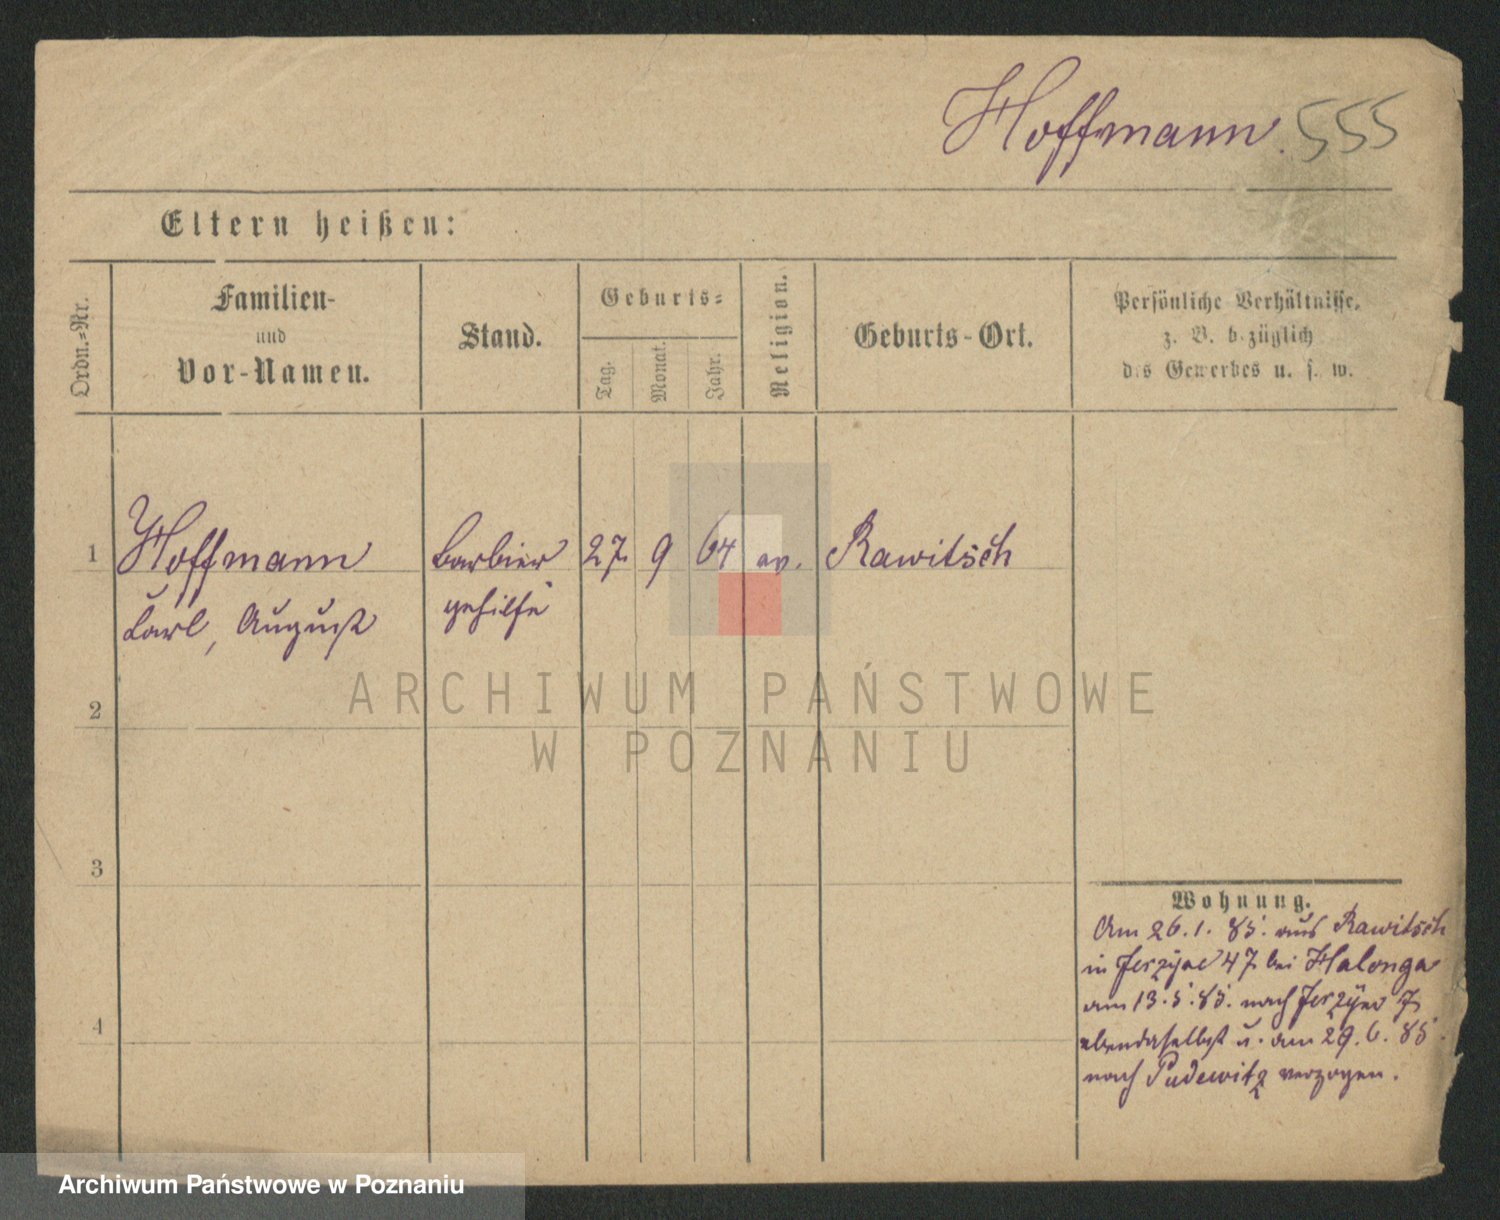 Hoffmann. 555
Eltern heißen:
Ordn.=Nr.
Familien-
und
Vor-Namen.
Stand.
Geburts=
Tag.
Monat.
Jahr.
Religion.
Geburts-Ort.
Persönliche Verhältnisse,
z. B. bezüglich
des Gewerbes u. s. w.
1 Hoffmann Barbier 27. 9 64 ev. Rawitsch
Carl, August gehilfe
2
3
4
Wohnung.
Am 26.1.85. aus Rawitsch
in Jerzyce 47 bei Halonga
am 13.5.85. nach Jerzyce 7
ebendaselbst u. am 29.6.85.
nach Pudewitz verzogen.
ARCHIWUM PAŃSTWOWE
W POZNANIU
Archiwum Państwowe w Poznaniu